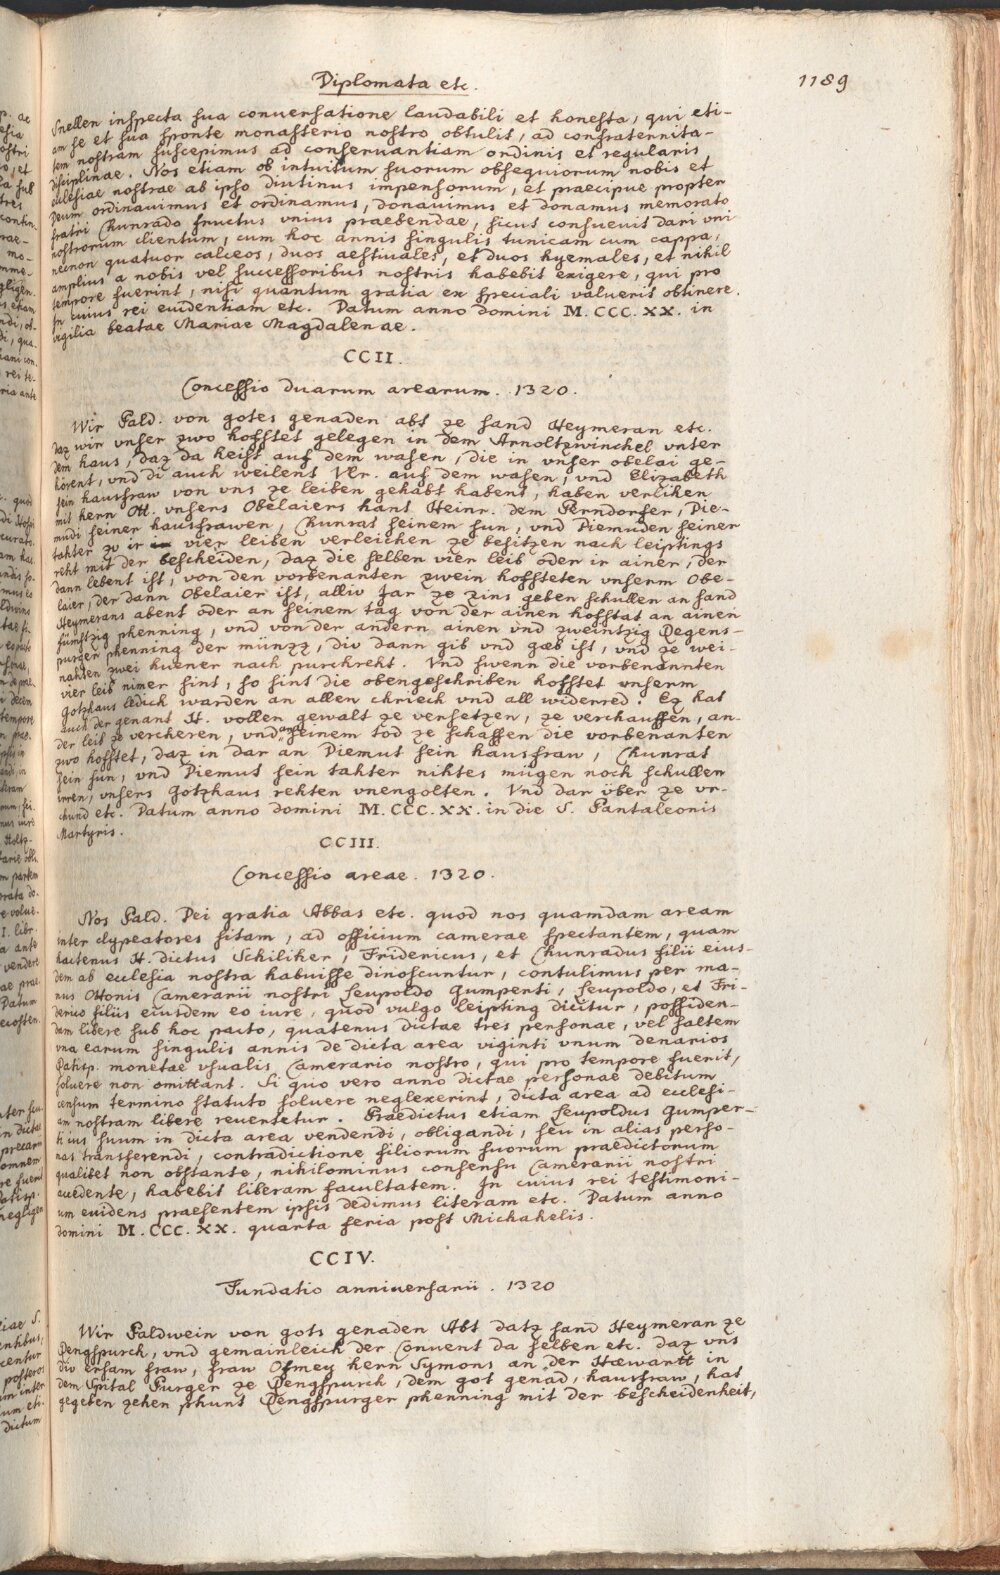 Diplomata etc. 1189
Snellen inspecta sua conuersatione laudabili et honesta, qui eti-
am se et sua sponte monasterio nostro obtulit, ad confraternita-
tem nostram suscepimus ad conseruantiam ordinis et regularis
disciplinae. Nos etiam ob intuitum suorum obsequiorum nobis et
ecclesiae nostrae ab ipso diutinus impensorum, et praecipue propter
Deum ordinauimus et ordinamus, donauimus et donamus memorato
fratri Chunrado fructus vnius praebendae, sicut consueuit dari vni
nostrorum clientum, cum hoc annis singulis tunicam cum cappa,
necnon quatuor calceos, duos aestiuales, et duos hyemales, et nihil
amplius a nobis vel successoribus nostris habebit exigere, qui pro
tempore fuerint, nisi quantum gratia ex speciali valuerit obtinere.
In cuius rei euidentiam etc. Datum anno domini M.CCC.XX. in
vigilia beatae Mariae Magdalenae.
CCII.
Concessio duarum arearum. 1320.
Wir Pald. von gotes genaden abt ze sand Heymeran etc.
daz wir vnser zwo hofstet gelegen in dem Arnoltzwinchel vnter
dem haus, daz da heist auf dem wasen, die in vnser obelai ge-
hörent, vnd di auch weilent Vlr. auf dem wasen, vnd Elizabeth
sein hausfraw von vns ze leiben gehabt habent, haben verlihen
mit hern Ott. vnsers Obelaiers hant Heinr. dem Perndorfer, Die-
mudi seiner hausfrawen, Chunrat seinem sun, vnd Diemuden seiner
tahter zv ir vier leiben verleichen ze besitzen nach leiptings
reht mit der bescheiden, daz die selben vier leib oder ir ainer, der
dann lebent ist, von den vorbenanten zwein hofsteten vnserm Obe-
laier, der dann Obelaier ist, alliv Jar ze zins geben schullen an sand
Heymerans abent oder an seinem tag von der ainen hofstat an ainen
fümftzig phenning, vnd von der andern ainen vnd zweintzig Regens-
purger phenning der münzz, div dann gib vnd gæb ist, vnd ze wei-
nahten zwei huener nach purchreht. Vnd swenn die vorbenannten
vier leib nimer sint, so sint die obengeschriben hofstet vnserm
Gotzhaus ledich warden an allen chriech vnd all widerred. Ez hat
auch der genant H. vollen gewalt ze versetzen, ze verchauffen, an-
der leib ze vercheren, vnd an seinem tod ze schaffen die vorbenanten
zwo hofstet, daz in dar an Diemut sein hausfraw, Chunrat
sein sun, vnd Diemut sein tahter nihtes mügen noch schullen
irren, vnsers Gotzhaus rehten vnengolten. Vnd dar über ze vr-
chund etc. Datum anno domini M.CCC.XX. in die S. Pantaleonis
Martyris.
CCIII.
Concessio areae. 1320.
Nos Pald. Dei gratia Abbas etc. quod nos quamdam aream
inter clypeatores sitam, ad officium camerae spectantem, quam
hactenus H. dictus Schiliher, Fridericus, et Chunradus filii eius-
dem ab ecclesia nostra habuisse dinoscuntur, contulimus per ma-
nus Ottonis Camerarii nostri Leupoldo Gumperti, Leupoldo, et Fri-
derico filiis eiusdem eo iure, quod vulgo leipting dicitur, possiden-
dam libere sub hoc pacto, quatenus dictae tres personae, vel saltem
vna earum singulis annis de dicta area viginti vnum denarios
Ratisp. monetae vsualis Camerario nostro, qui pro tempore fuerit,
soluere non omittant. Si quo vero anno dictae personae debitum
censum termino statuto soluere neglexerint, dicta area ad ecclesi-
am nostram libere reuertetur. Praedictus etiam Leupoldus Gumper-
ti ius suum in dicta area vendendi, obligandi, seu in alias perso-
nas transferendi, contradictione filiorum suorum praedictorum
qualibet non obstante, nihilominus consensu Camerarii nostri
accedente, habebit liberam facultatem. In cuius rei testimoni-
um euidens praesentem ipsis dedimus literam etc. Datum anno
domini M.CCC.XX. quarta feria post Michahelis.
CCIV.
Fundatio anniuersarii. 1320
Wir Paldwein von gots genaden Abt datz sand Heymeran ze
Rengspurch, vnd gemainleich der Convent da selben etc. daz vns
div ersam fraw, fraw Ofmey hern Symons an der Hæwartt in
dem Spital Purger ze Rengspurch, dem got genad, hausfraw, hat
gegeben zehen phunt Rengspurger phenning mit der bescheidenheit,